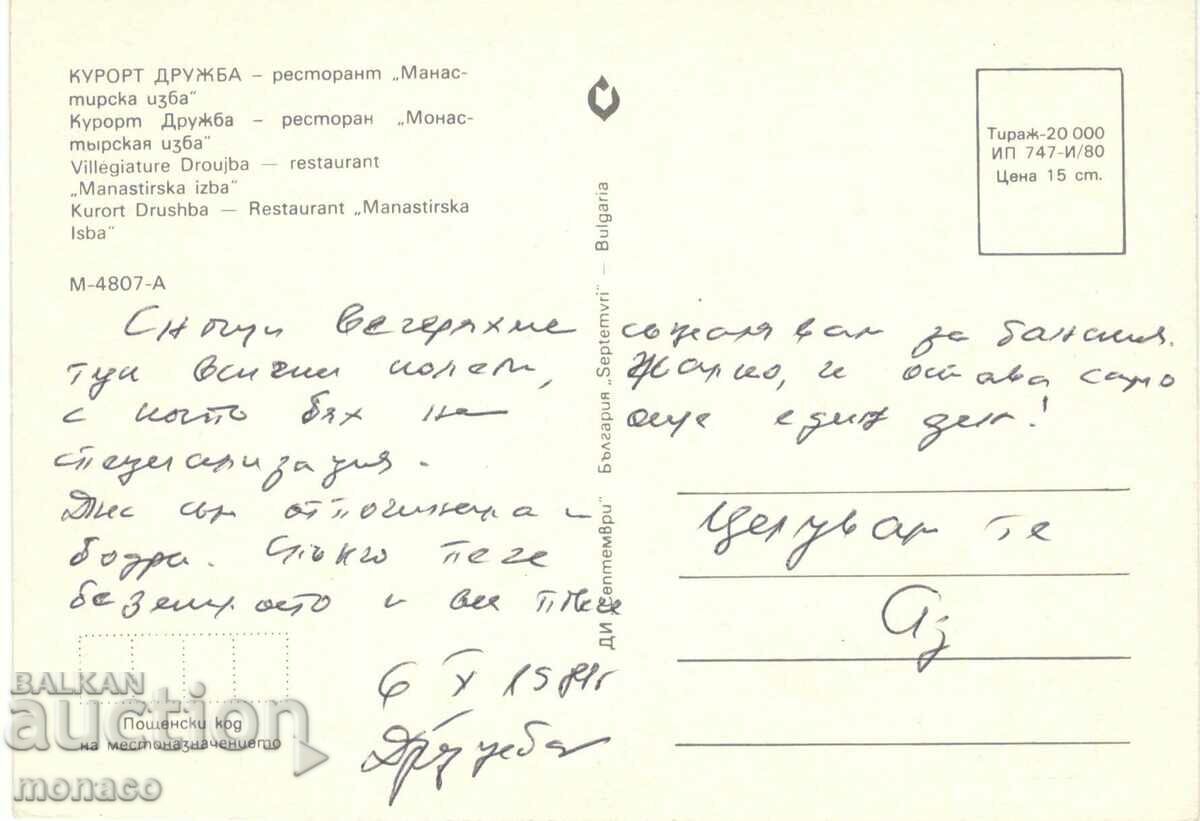 КУРОРТ ДРУЖБА – ресторант „Манас-
тирска изба"
Курорт Дружба – ресторан „Монас-
тырская изба"
Villégiature Droujba — restaurant
„Manastirska izba"
Kurort Drushba — Restaurant „Manastirska
Isba"
М-4807-А
Тираж-20 000
ИП 747-И/80
Цена 15 ст.
ДИ „Септември" България „Septemvri" — Bulgaria
Снощи вечеряхме
тук всички колеги,
с които бях на
специализация.
Днес сме отпочинали и
бодри. Слънцето пече
и все пак
съжалявам за банския.
Жалко, че остава само
още един ден!
Целувам те
Аз
6 X 1981г
Дружба
Пощенски код
на местоназначението
BALKAN
auction
monaco